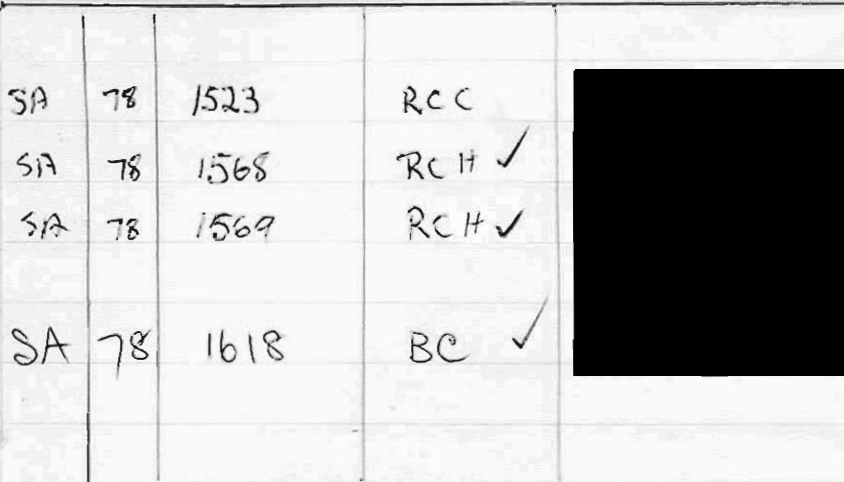 SA 78 1523 RCC
SA 78 1568 RCH ✓
SA 78 1569 RCH ✓
SA 78 1618 BC ✓